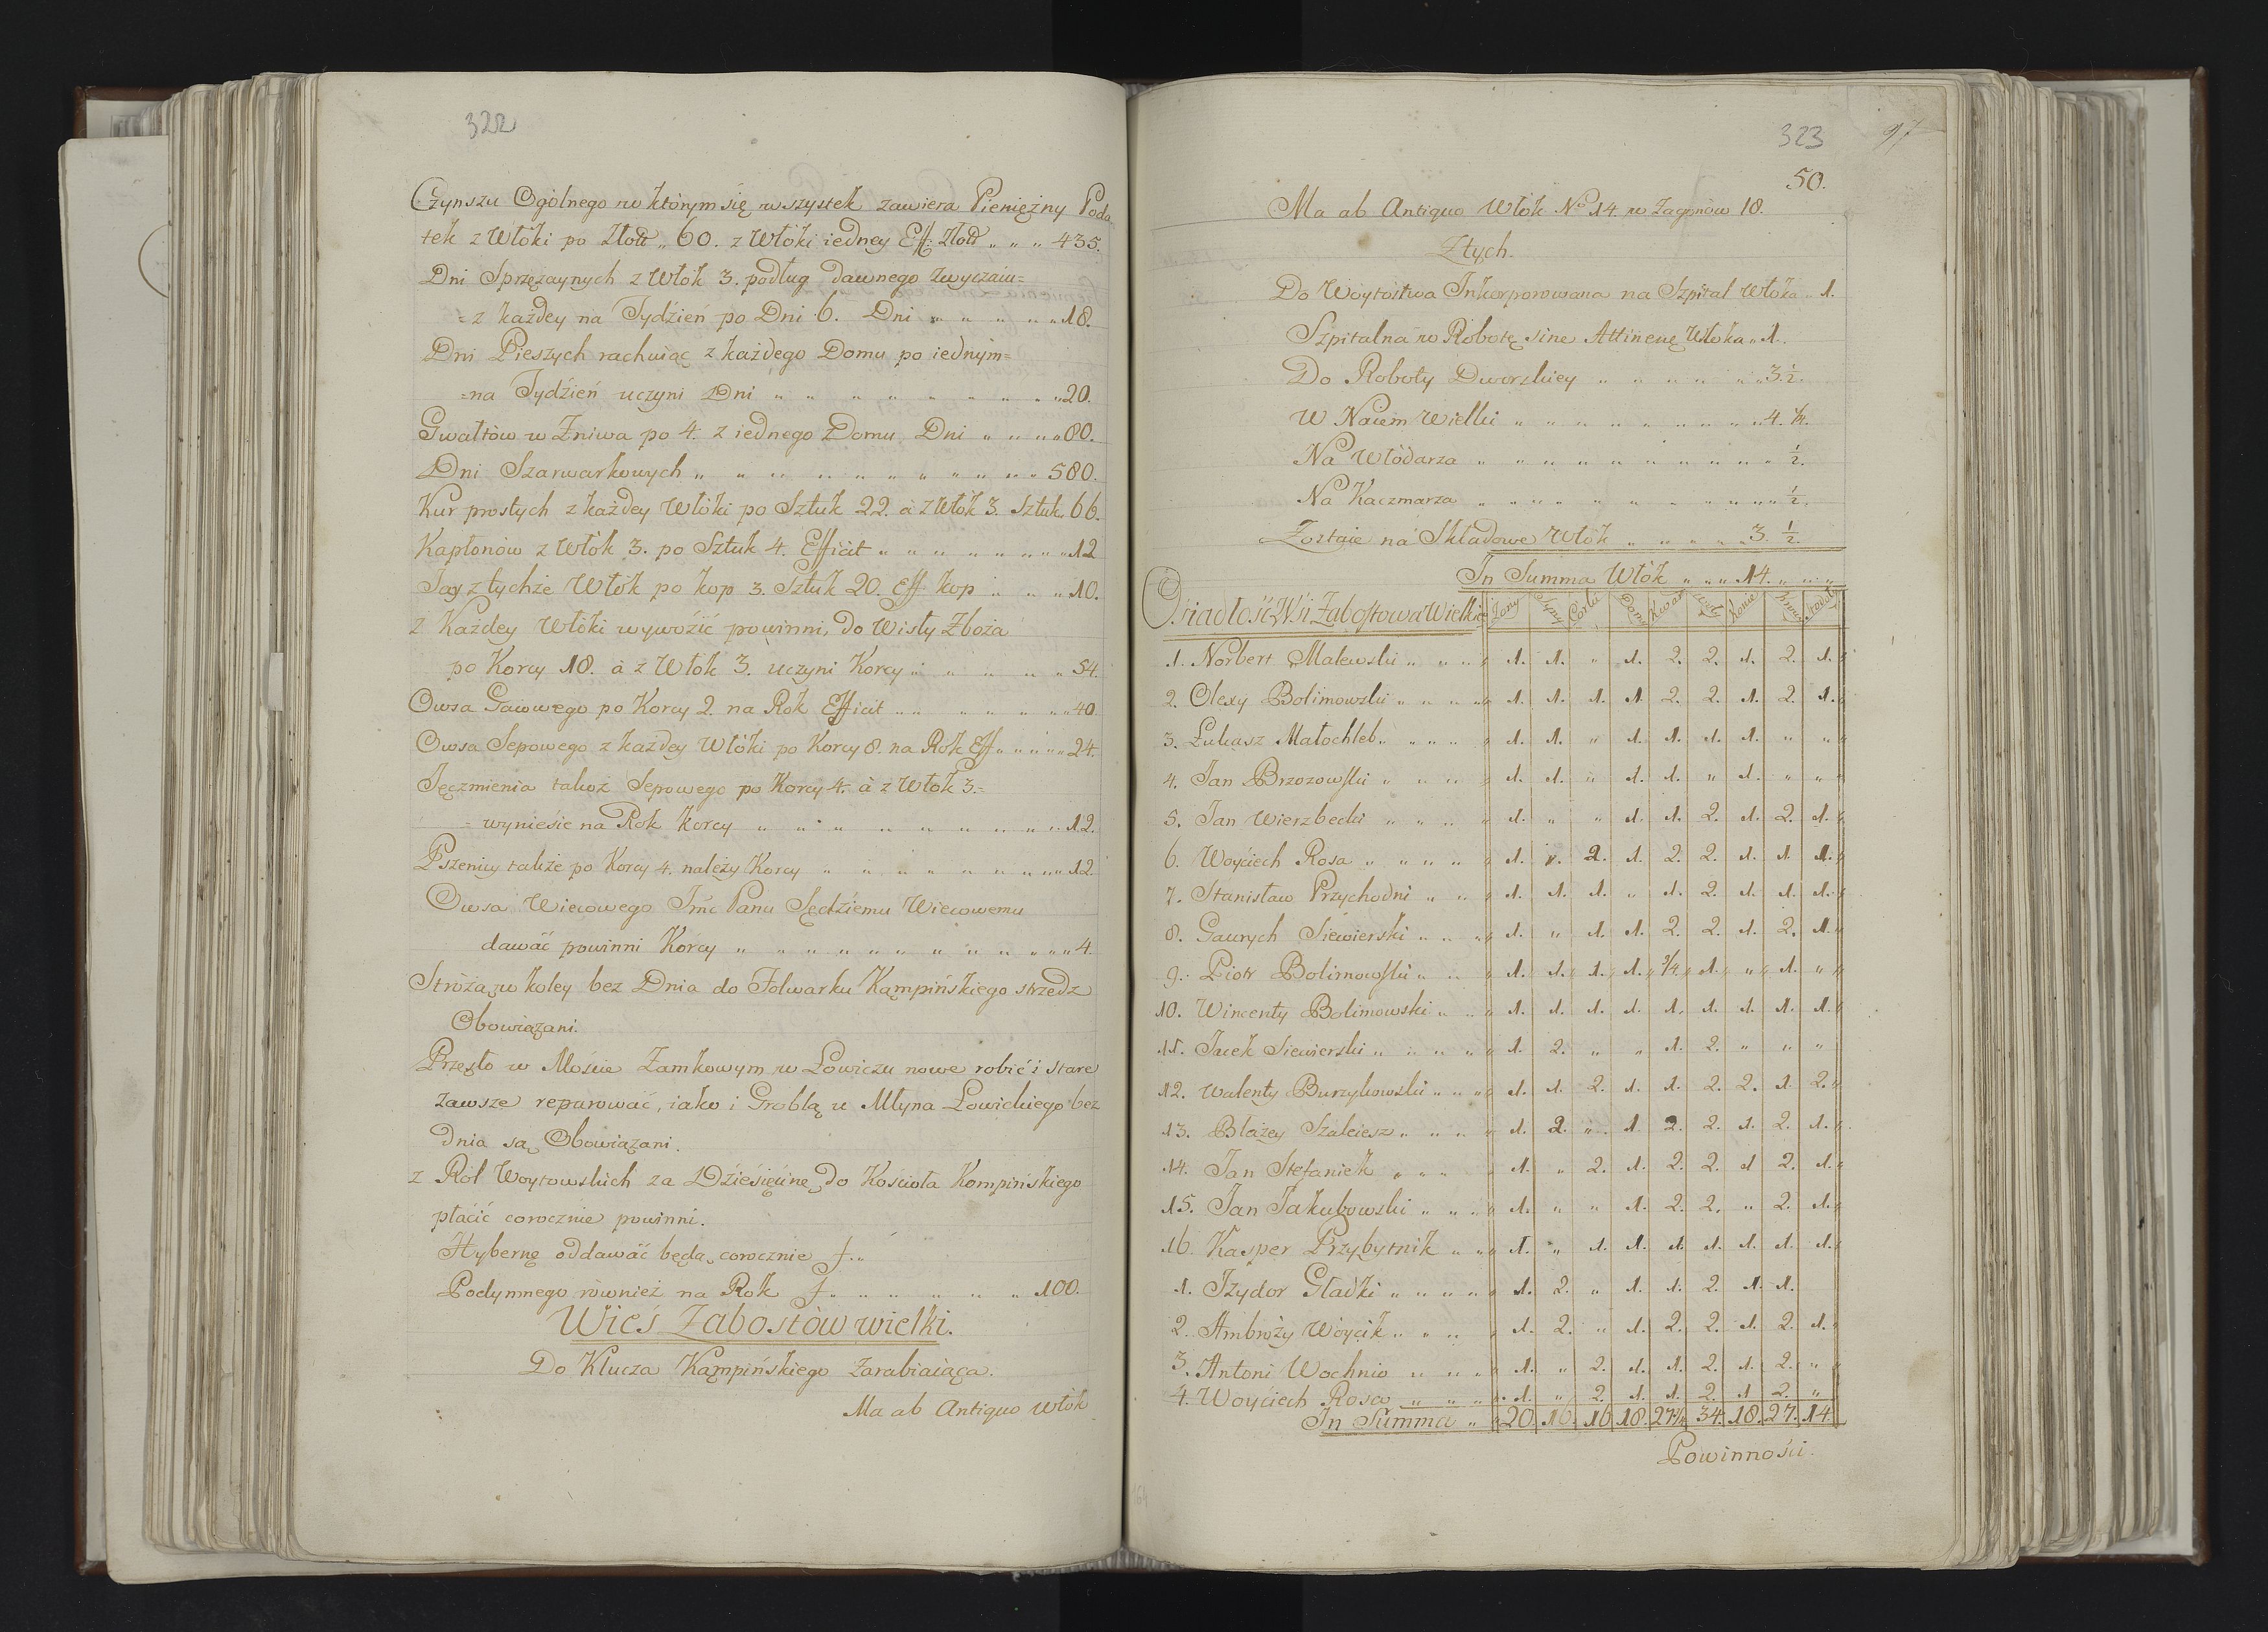 322
Czynszu Ogólnego w którym się wszystek zawiera Pieniężny Poda
tek z Włóki po Złott „ 60. z Włóki iedney Eff: Złott „ „ „ 435.
Dni Sprzężaynych z Włók 3. podług dawnego Zwyczaiu=
= z każdey na Tydźień po Dni 6. Dni „ „ „ „ „ 18.
Dni Pieszych rachuiąc z każdego Domu po iednym=
=na Tydźień uczyni Dni „ „ „ „ „ „ „ „ „ 20.
Gwałtów w Żniwa po 4. z iednego Domu Dni „ „ „ „ 80.
Dni Szarwarkowych „ „ „ „ „ „ „ „ „ „ „ 580.
Kur prostych z każdey Włóki po Sztuk 22. à z Włók 3. Sztuk. 66.
Kapłonów z Włók 3. po Sztuk 4. Efficit „ „ „ „ „ „ „ „ 12
Jay z tychże Włók po kop 3. Sztuk 20. Eff kop „ „ „ 10.
Z Każdey Włóki wywoźić powinni, do Wisły Zboża
po Korcy 18. à z Włók 3. uczyni Korcy „ „ „ „ „ 54.
Owsa Gaiowego po Korcy 2. na Rok Efficit „ „ „ „ „ „ „ 40.
Owsa Sepowego z każdey Włóki po Korcy 8. na Rok Eff „ „ „ „ „ 24.
Jęczmienia także Sepowego po Korcy 4. à z Włók 3.=
= wyniesie na Rok korcy „ „ „ „ „ „ „ „ „ „ 12.
Pszenicy także po Korcy 4. należy Korcy „ „ „ „ „ „ „ „ „ 12.
Owsa Wiecowego Jmć Panu Sędźiemu Wiecowemu
dawać powinni Korcy „ „ „ „ „ „ „ „ „ „ „ „ 4.
Stróżą w koley bez Dnia do Folwarku Kąmpińskiego strzedz
Obowiązani.
Przęsło w Moście Zamkowym w Łowiczu nowe robić i stare
zawsze reparować, iako i Groblą u Młyna Łowickiego bez
dnia są Obowiązani.
z Ról Woytowskich za Dźieśięćinę do Kośćioła Kompińskiego
płacić corocznie powinni.
Hybernę oddawać będą corocznie f „
Podymnego również na Rok f „ „ „ „ „ „ 100.
Wieś Zabostów wielki.
Do Klucza Kąmpińskiego Zarabiaiąca.
Ma ab Antiquo włók
323 97
50.
Ma ab Antiquo Włók No 14. w Zagonów 18.
Z tych.
Do Woytostwa Inkorporowana na Szpital Włóka „ 1.
Szpitalna w Robotę sine Attinenę Włoka „ 1.
Do Roboty Dworskiey „ „ „ „ „ „ 3. 1/2.
W Naiem Wielki „ „ „ „ „ „ „ „ „ 4. 1/2.
Na Włódarza „ „ „ „ „ „ „ „ „ „ 1/2.
Na Kaczmarza „ „ „ „ „ „ „ „ „ „ 1/2.
Zostaie na Składowe Włók „ „ „ „ „ 3. 1/2.
In Summa Włók „ „ „ 14. „ „ „
Osiadłość Wsi Zabostowa Wielkie Żony Syny Corki Domy Konie
1. Norbert Malewski „ „ „ „ 1. 1. „ 1. 2. 2. 1. 2. 1.
2. Olexy Bolimowski „ „ „ „ 1. 1. 1. 1 2. 2. 1. 2. 1.
3. Łukasz Małochleb „ „ „ „ 1. 1. „ 1. 1. 1. 1. „ „
4. Jan Brzozowski „ „ „ „ 1. 1. „ 1. 1. „ 1. „ „
5. Jan Wierzbecki „ „ „ „ 1. „ „ 1. 1. 2. 1. 2. 1.
6. Woyćiech Rosa „ „ „ „ 1. 1. 2. 1. 2. 2. 1. 1. 1.
7. Stanisław Przychodni „ „ „ 1. 1. 1. „ 1. 2. 1. 1. 1.
8. Gawrych Siewierski „ „ „ 1. „ 1. 1. 2. 2. 1. 2. 1.
9. Piotr Bolimowski „ „ „ 1. 1. 1. 1. 3/4 1. „ 1. „
10. Wincenty Bolimowski „ „ 1. 1. 1. 1. 1. 1. 1. 1. 1.
11. Jacek Siewierski „ „ „ „ 1. 2. „ „ 1. 2. „ „ „
12. Walenty Burzykowski „ „ „ 1. 1. 2. 1. 1. 2. 2. 1. 2.
13. Błażey Szaleiesz „ „ „ „ 1. 2. „ 1. 2. 2. 1. 2. 1.
14. Jan Stefaniek „ „ „ „ 1. „ 2. 1. 2. 2. 1 2. 1.
15. Jan Jakubowski „ „ „ „ 1. „ „ 1. 2. 2. „ 2. 1.
16. Kasper Przybytnik „ „ „ 1. „ 1. 1. 1. 1. 1. 1. 1.
1. Jzydor Gładki „ „ „ „ 1. 2. „ 1. 1. 2. 1. 1.
2. Ambroży Woyćik „ „ „ „ 1. 2. „ 1. 2. 2. 1. 2. 1.
3. Antoni Wochnio „ „ „ „ 1. „ 2. 1. 1. 2. 1. 2. „
4. Woyćiech Rosa „ „ „ „ 1. „ 2. 1. 1. 2. 1 2. „
In Summa „ „ 20. 16. 16. 18. 27 34. 18. 27. 14.
Powinnośći.
164